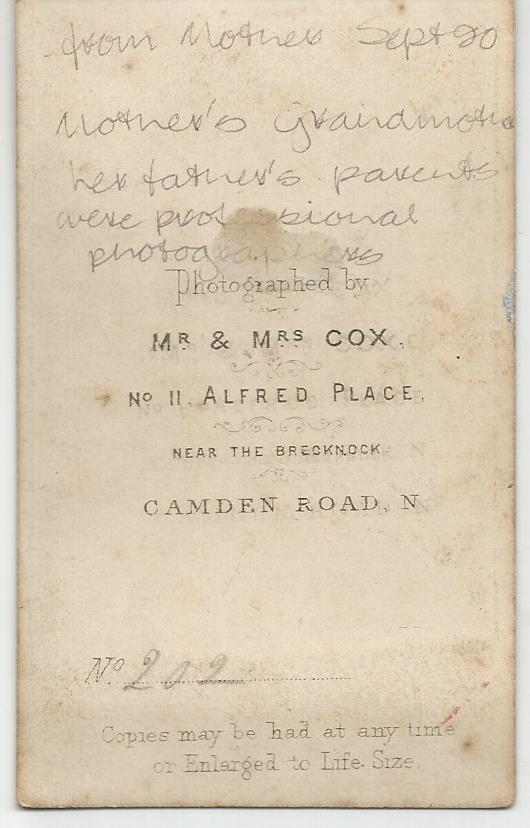 from Mother Sept 90
Mother's Grandmother
her father's parents
were professional
photographers
Photographed by
MR & MRS COX,
No 11. ALFRED PLACE,
NEAR THE BRECKNOCK,
CAMDEN ROAD, N
No 202
Copies may be had at any time
or Enlarged to Life Size.